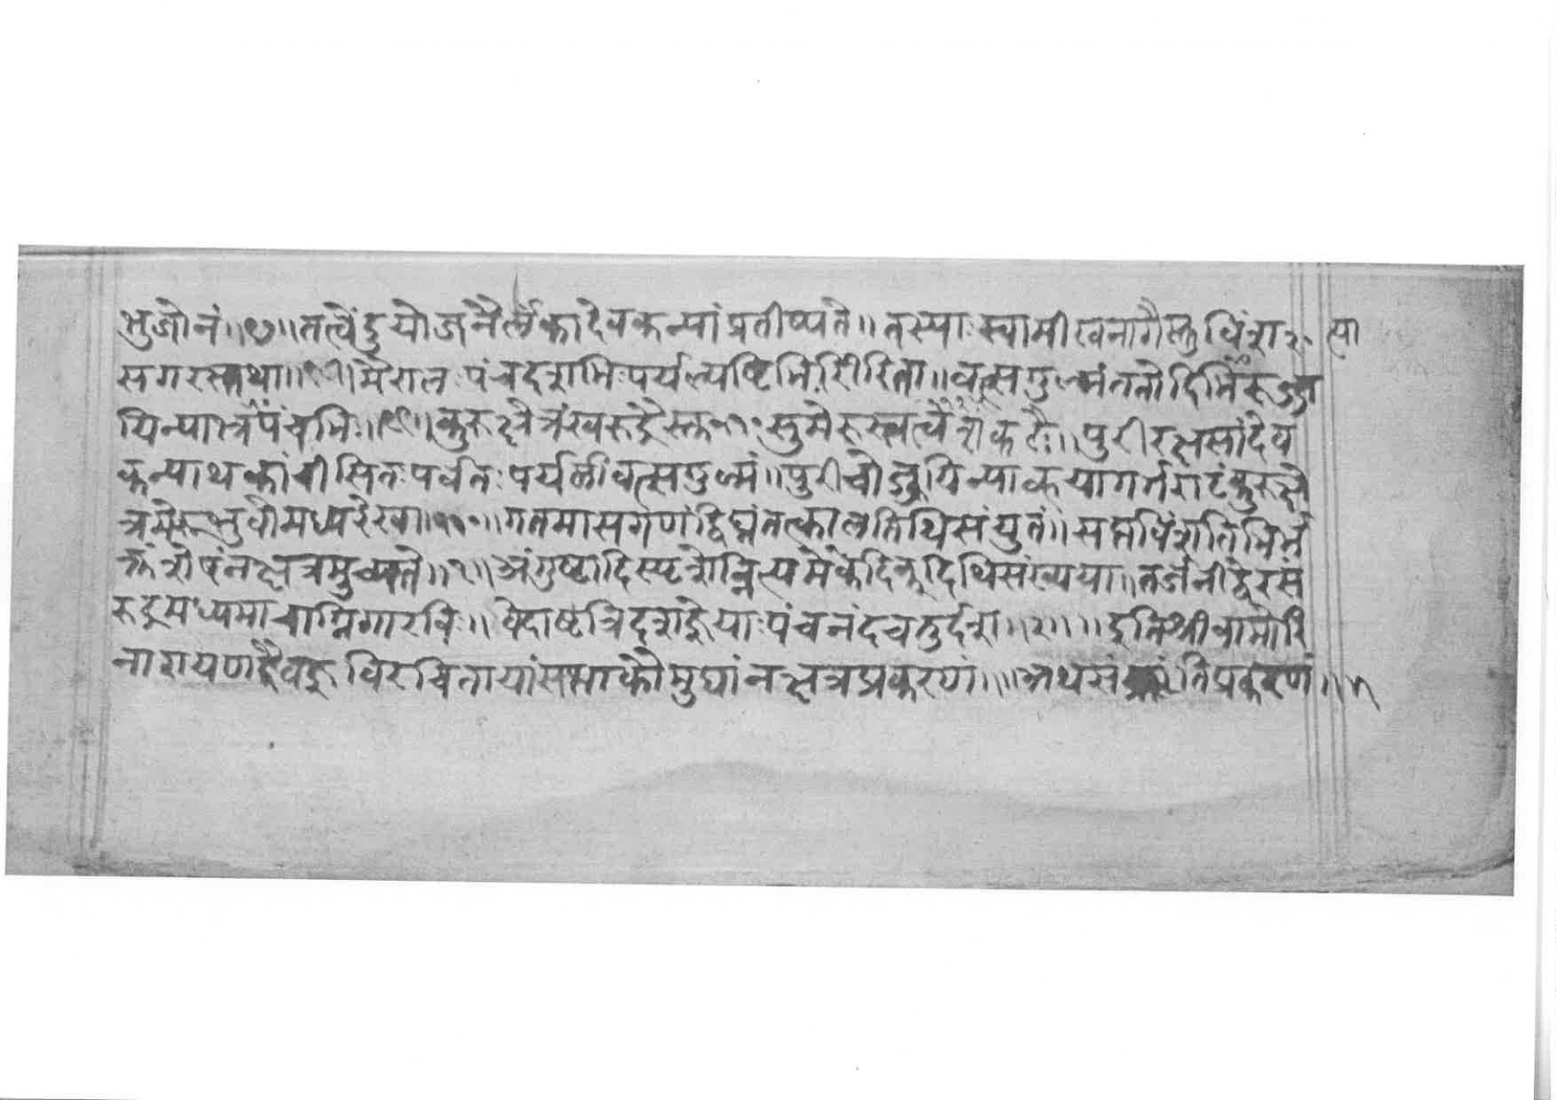 भुजोनं ॥९७॥ तत्वेंदुयोजनैर्लंकादेवकन्यां प्रतीष्यते ॥ तस्याः स्वामी खनागैस्तु विंशा
सगरस्तथा ॥ मैरालः पंचदशभिः पर्यल्यष्टिभिरीरिता ॥ वत्सगुल्मं ततो दिग्भिरुज्ज
यिन्यात्र पंचभिः ॥ कुरुक्षेत्रं खरुद्रैस्तु सुमेरुस्वत्व ॥ पुरी रक्षसां देव
कन्याथ कांची सितः पर्वतः पर्यली वत्सगुल्मं ॥ पुरी चोज्जयिन्याव्हया गर्गराटं कुरुक्षे
त्रमेरू भुवो मध्यरेखा ॥ गतमासगणं द्विघ्नं तत्कालतिथिसंयुतं ॥ सप्तविंशतिभिर्भ
क्तं शेषं नक्षत्रमुच्यते ॥१॥ अंगुष्टादि स्पृशेन्नित्यमेकेंदि दिथिसंख्यया ॥ तर्जनी द्वे रसं
रुद्र मध्यमा चाग्नि रविः ॥ वेदाष्ट त्रिदश ज्ञेया पंच नंद चतुर्दश ॥२॥ इति श्री
नारायणदैवज्ञ विरचितायां सभाकौमुद्यां नक्षत्रप्रकरणं ॥ अथ संक्रांतिप्रकरणं ॥